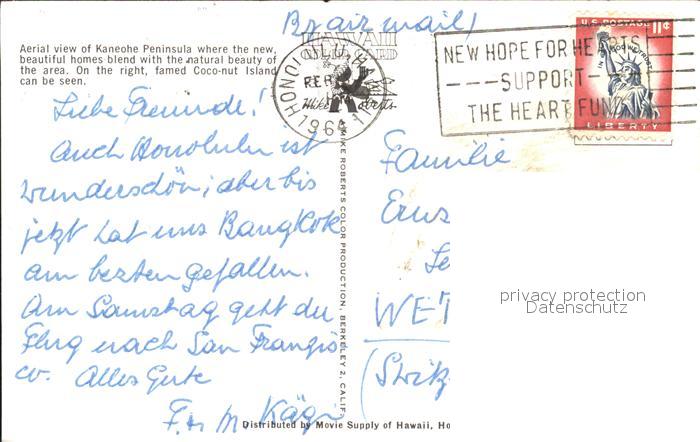 By air mail!
Aerial view of Kaneohe Peninsula where the new,
beautiful homes blend with the natural beauty of
the area. On the right, famed Coco-nut Island
can be seen.
HAWAII
CARD
Mike Roberts
HONOLULU HAWAII
FEB
1964
NEW HOPE FOR HEARTS
SUPPORT
THE HEART FUND
U.S. POSTAGE 11¢
IN GOD WE TRUST
LIBERTY
Liebe Freunde!
Auch Honolulu ist
wunderschön, aber bis
jetzt hat uns Bangkok
am besten gefallen.
Am Samstag geht der
Flug nach San Franzis
co. Alles Gute
F. + M. Kägi
MIKE ROBERTS COLOR PRODUCTION, BERKELEY 2, CALIF.
Familie
Erns
WET
(Switz
privacy protection
Datenschutz
Distributed by Movie Supply of Hawaii, Ho